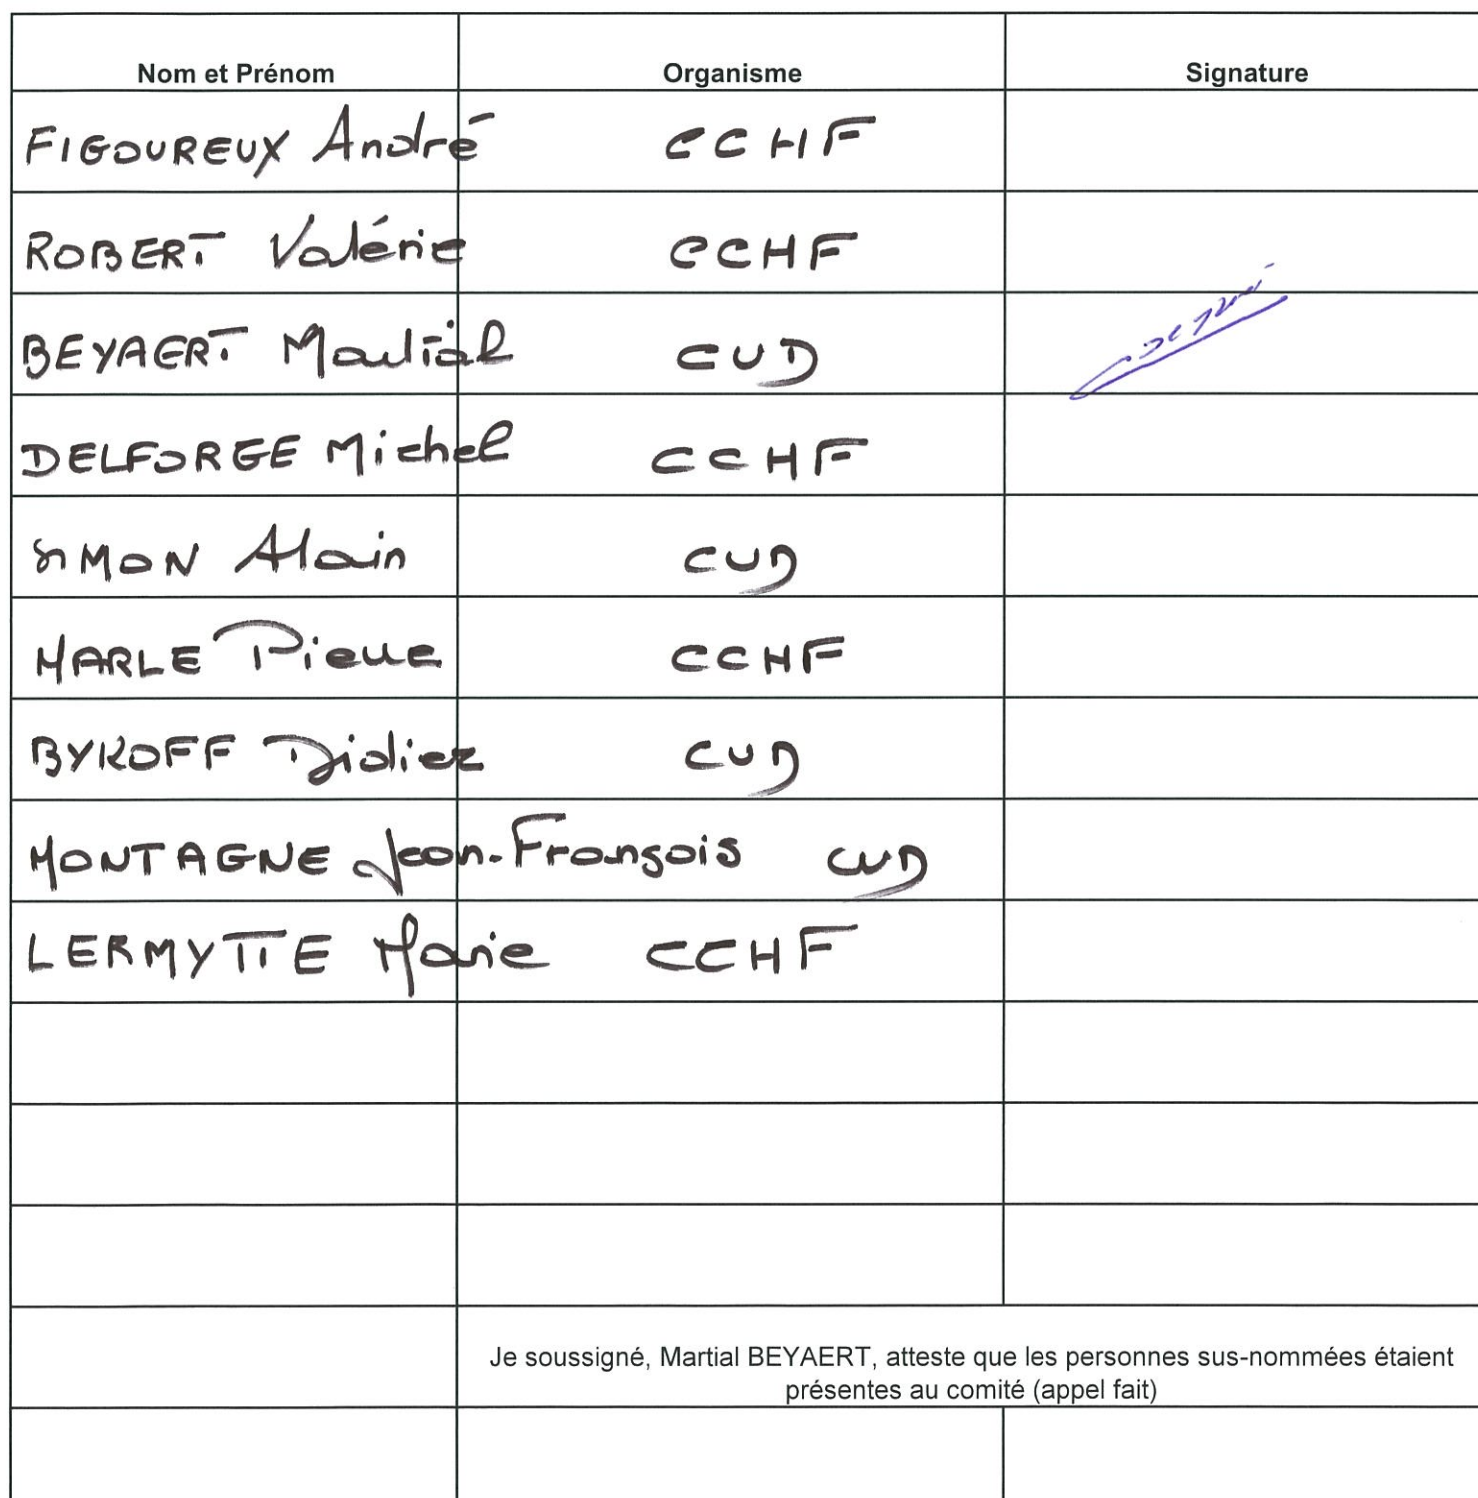 Nom et Prénom Organisme Signature
FIGOUREUX André CCHF
ROBERT Valérie CCHF
BEYAERT Martial CUD
DELFORGE Michel CCHF
SIMON Alain CUD
HARLE Pierre CCHF
BYKOFF Didier CUD
MONTAGNE Jean-François CUD
LERMYTTE Marie CCHF
Je soussigné, Martial BEYAERT, atteste que les personnes sus-nommées étaient
présentes au comité (appel fait)